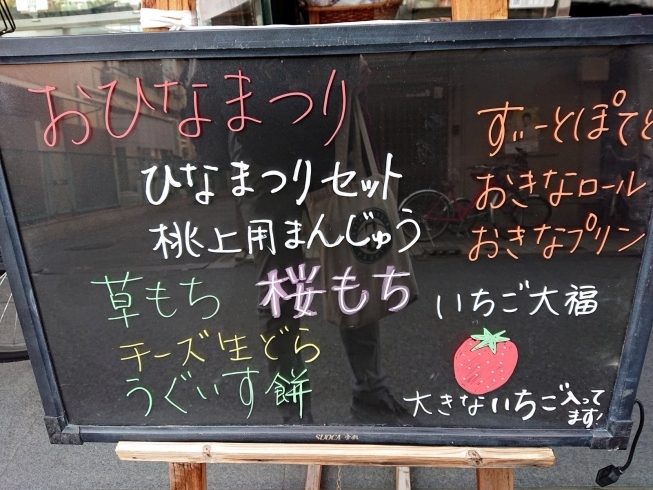 おひなまつり
ひなまつりセット
桃上用まんじゅう
草もち
桜もち
チーズ生どら
うぐいす餅
すいーとぽてと
おきなロール
おきなプリン
いちご大福
大きないちご入って
ます!